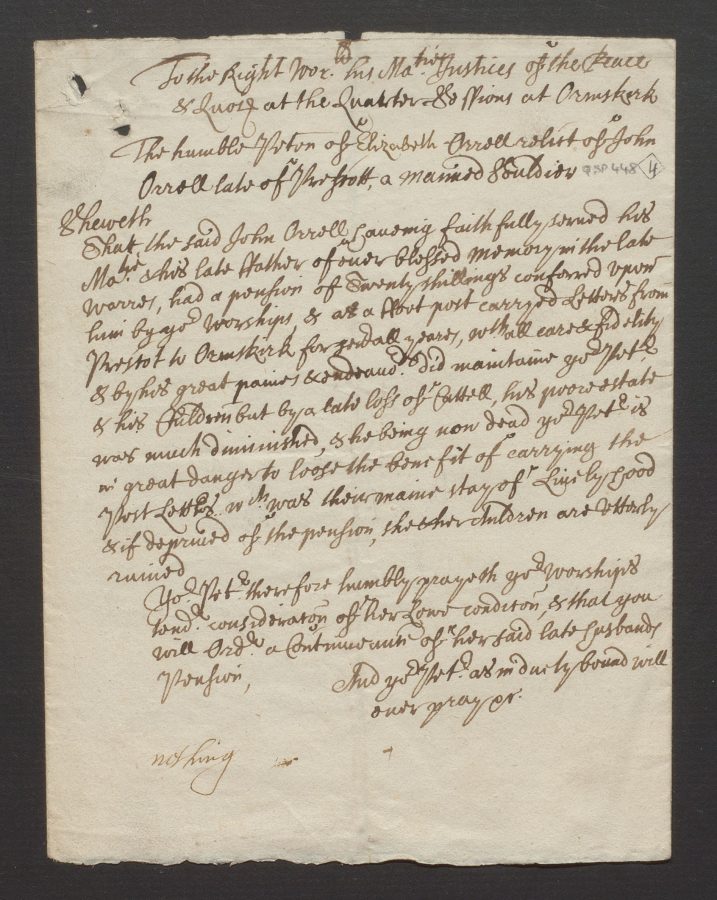 To the Right Wor:ll his Ma:ties Justices of the Peace
& Quor at the Quarter Sessions at Ormskirk
The humble Peton of Elizabeth Orrell relict of John
Orrell late of Prescott, a maimed Souldier QSP 448 4
Sheweth
That the said John Orrell haueing faithfully serued his
Ma:tye & his late ffather of euer blessed memory in the late
warres, had a pension of Twenty shillings conferred upon
him by yor Worships, & as a ffoot post carryed Letters from
Prescot to Ormskirk for seuall yeares, wth all care & fidelity
& by his great paines & endeauors did maintaine yor Petr
& his Children but by a late loss of Cattell, his poore estate
was much diminished, & he being now dead yor Petr is
in great danger to loose the benefit of carrying the
Post Letters wch was their maine stay of Liuelyhood
& if depriued of the pension, she & her Children are vtterly
ruined
Yor Petr therefore humbly prayeth yor worships
tendr consideraton of her Lowe conditon, & that you
will Ordr a Continuance of her said late husbands
Pension,
And yor Petr as in duety bound will
euer pray &c.
nothing